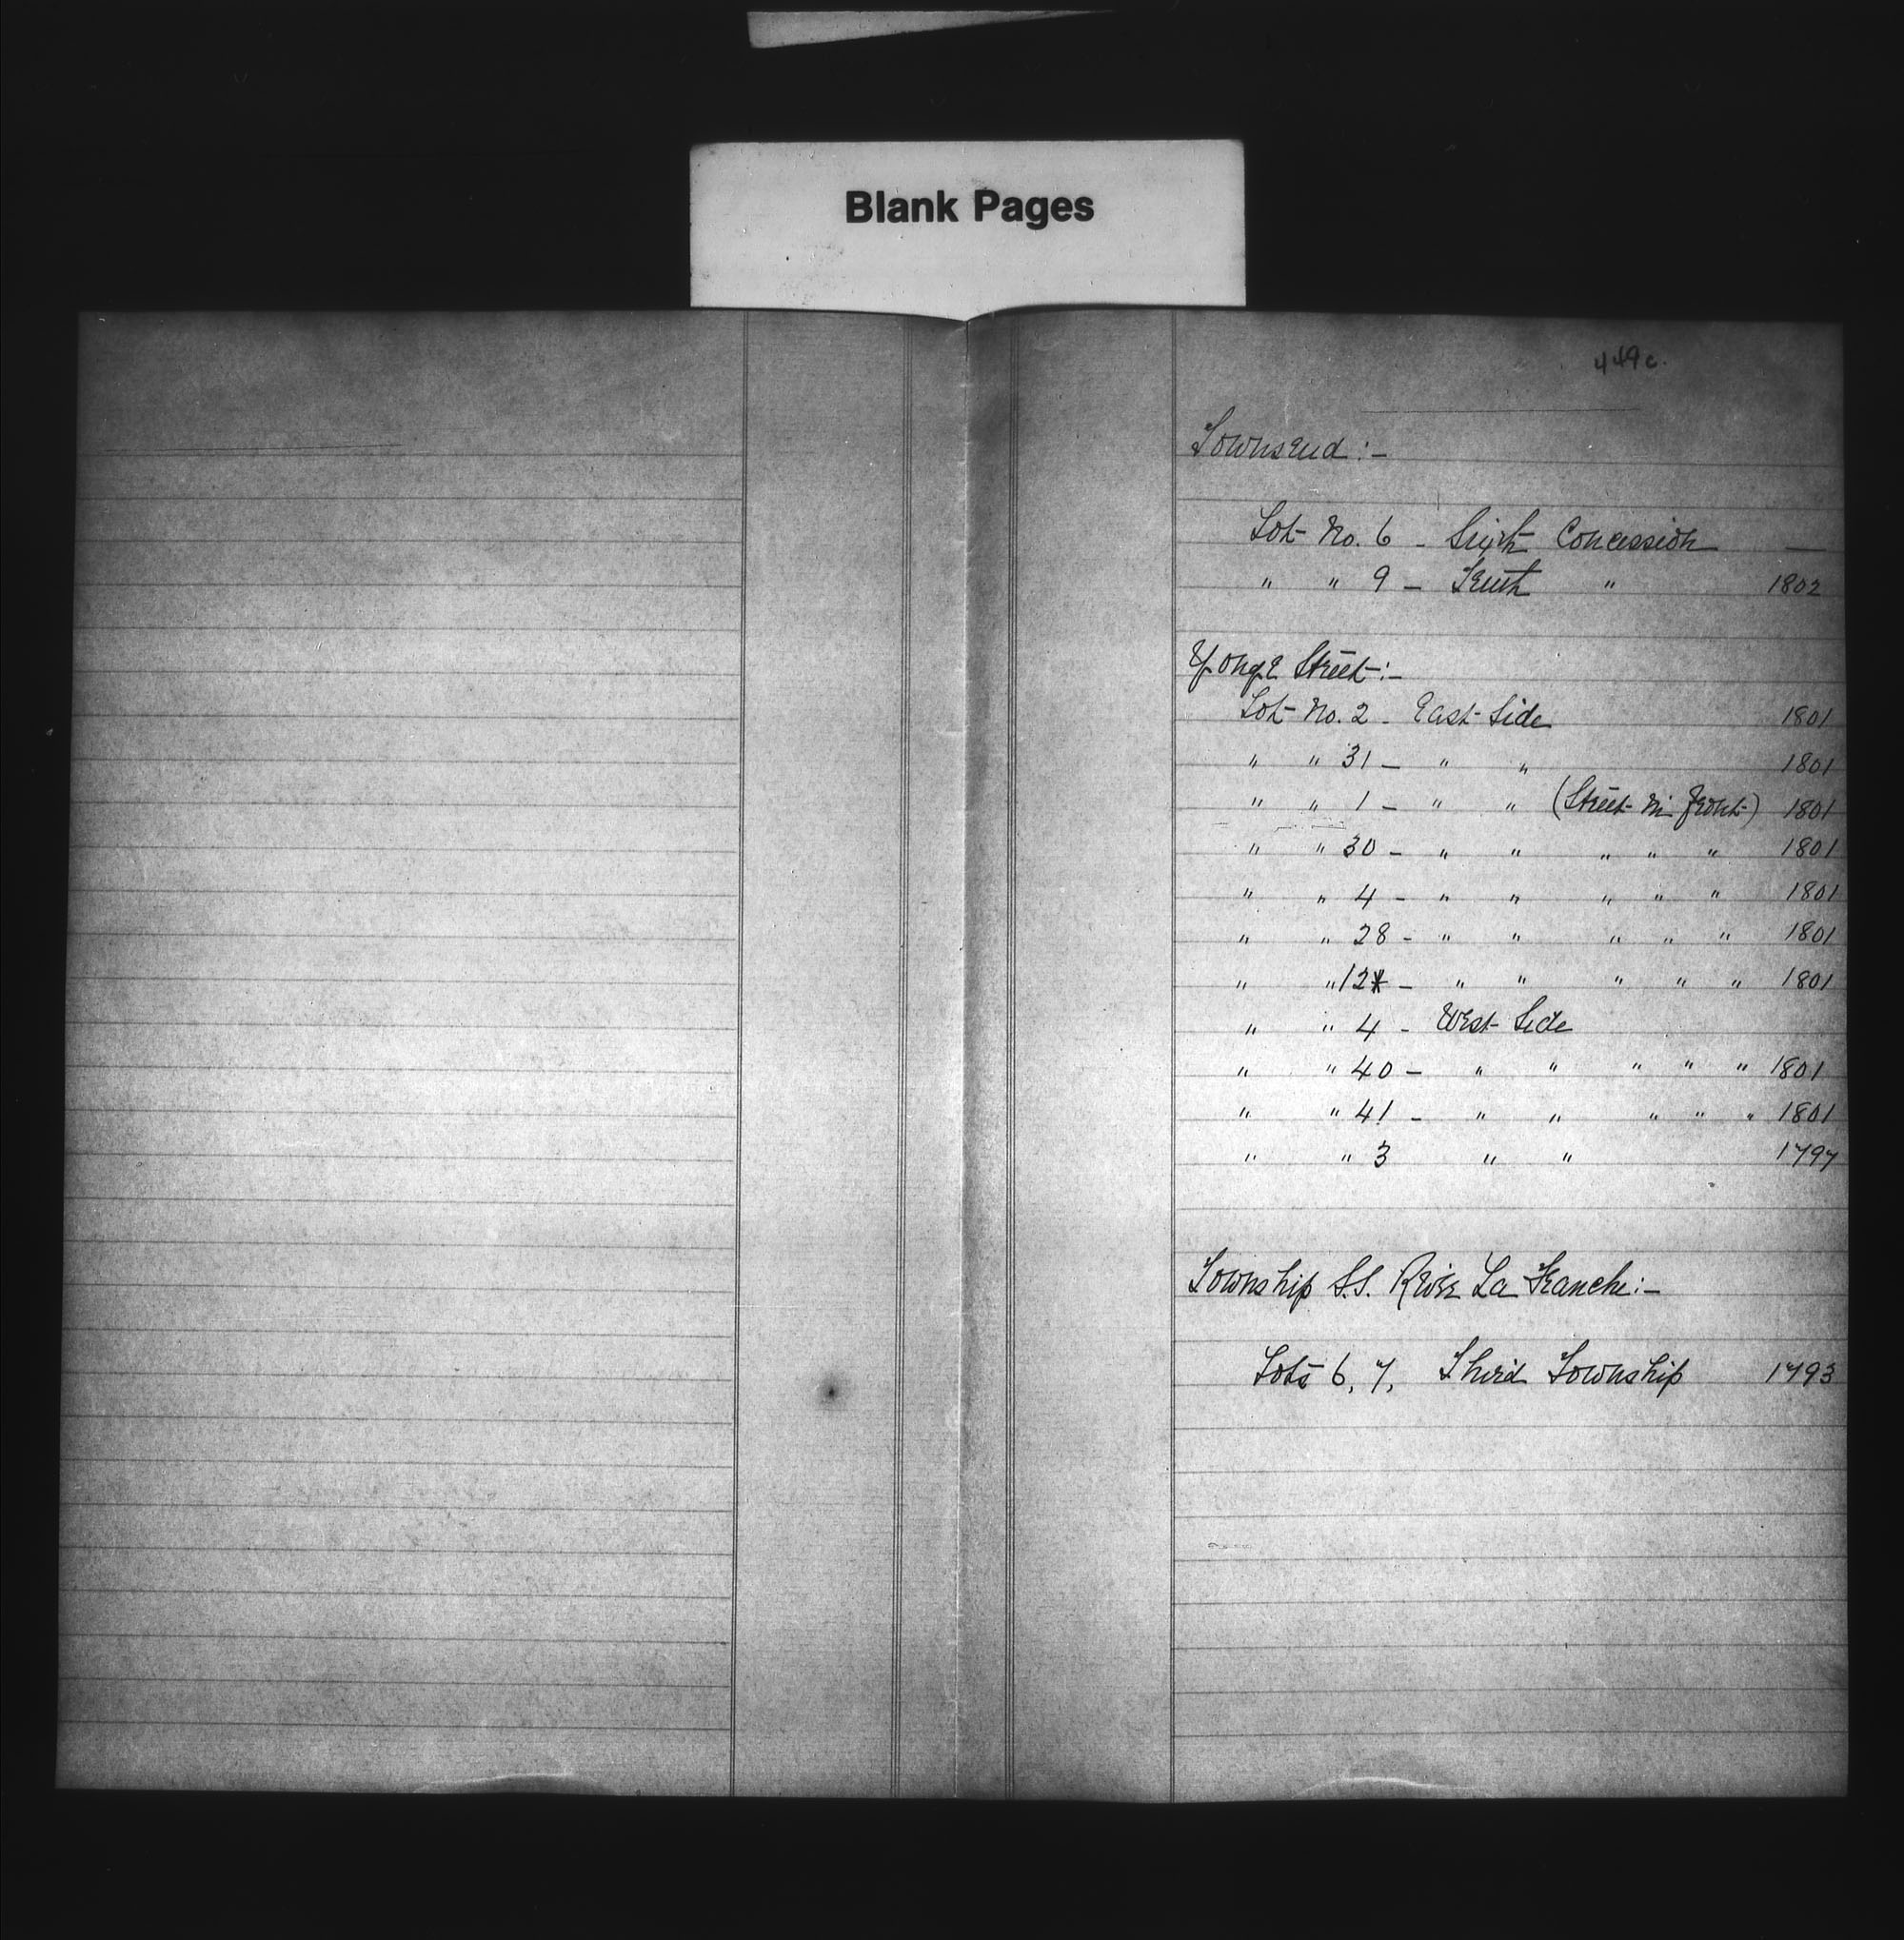 Blank Pages
449c.
Townsend :-
Lot No. 6 - Sixth Concession —
" " 9 - Tenth " 1802
Yonge Street :-
Lot No. 2 - East Side 1801
" " 31 - " " 1801
" " 1 - " " (Street in front) 1801
" " 30 - " " " " " 1801
" " 4 - " " " " " 1801
" " 28 - " " " " " 1801
" " 12* - " " " " " 1801
" " 4 - West Side
" " 40 - " " " " " 1801
" " 41 - " " " " " 1801
" " 3 " " 1797
Township S.S. River La Tranche :-
Lots 6, 7, Third Township 1793